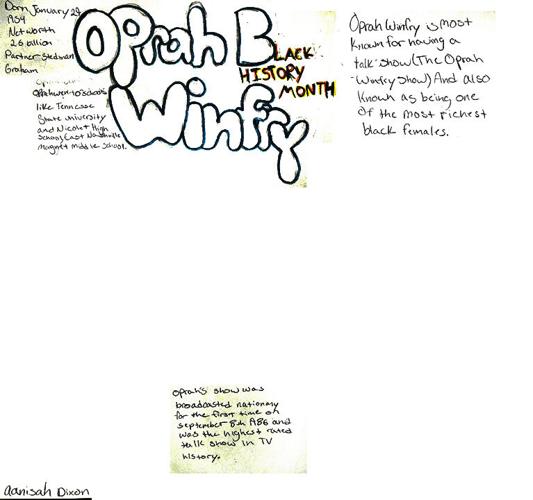 Born January 29
1954
Net worth
2.6 billion
Partner Stedman
Graham
Oprah went to schools
like Tennesse
State university
and Nicolet High
School, East Nashville
magnet middle school.
Oprah
Winfry
BLACK
HISTORY
MONTH
Oprah Winfry is most
Known for having a
talk show (The Oprah
Winfry Show) And also
Known as being one
of the most richest
black females.
Oprah's show was
broadcasted nationaly
for the first time on
september 8th 1986 and
was the highest rated
talk show in TV
history.
aanisah Dixon